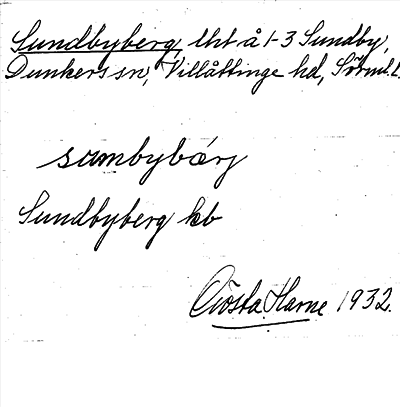 Sundbyberg, lht å 1-3 Sundby,
Dunkers sn, Villåttinge hd, Sörml. l.
sumbybárj
Sundbyberg kb
Gösta Harne 1932.